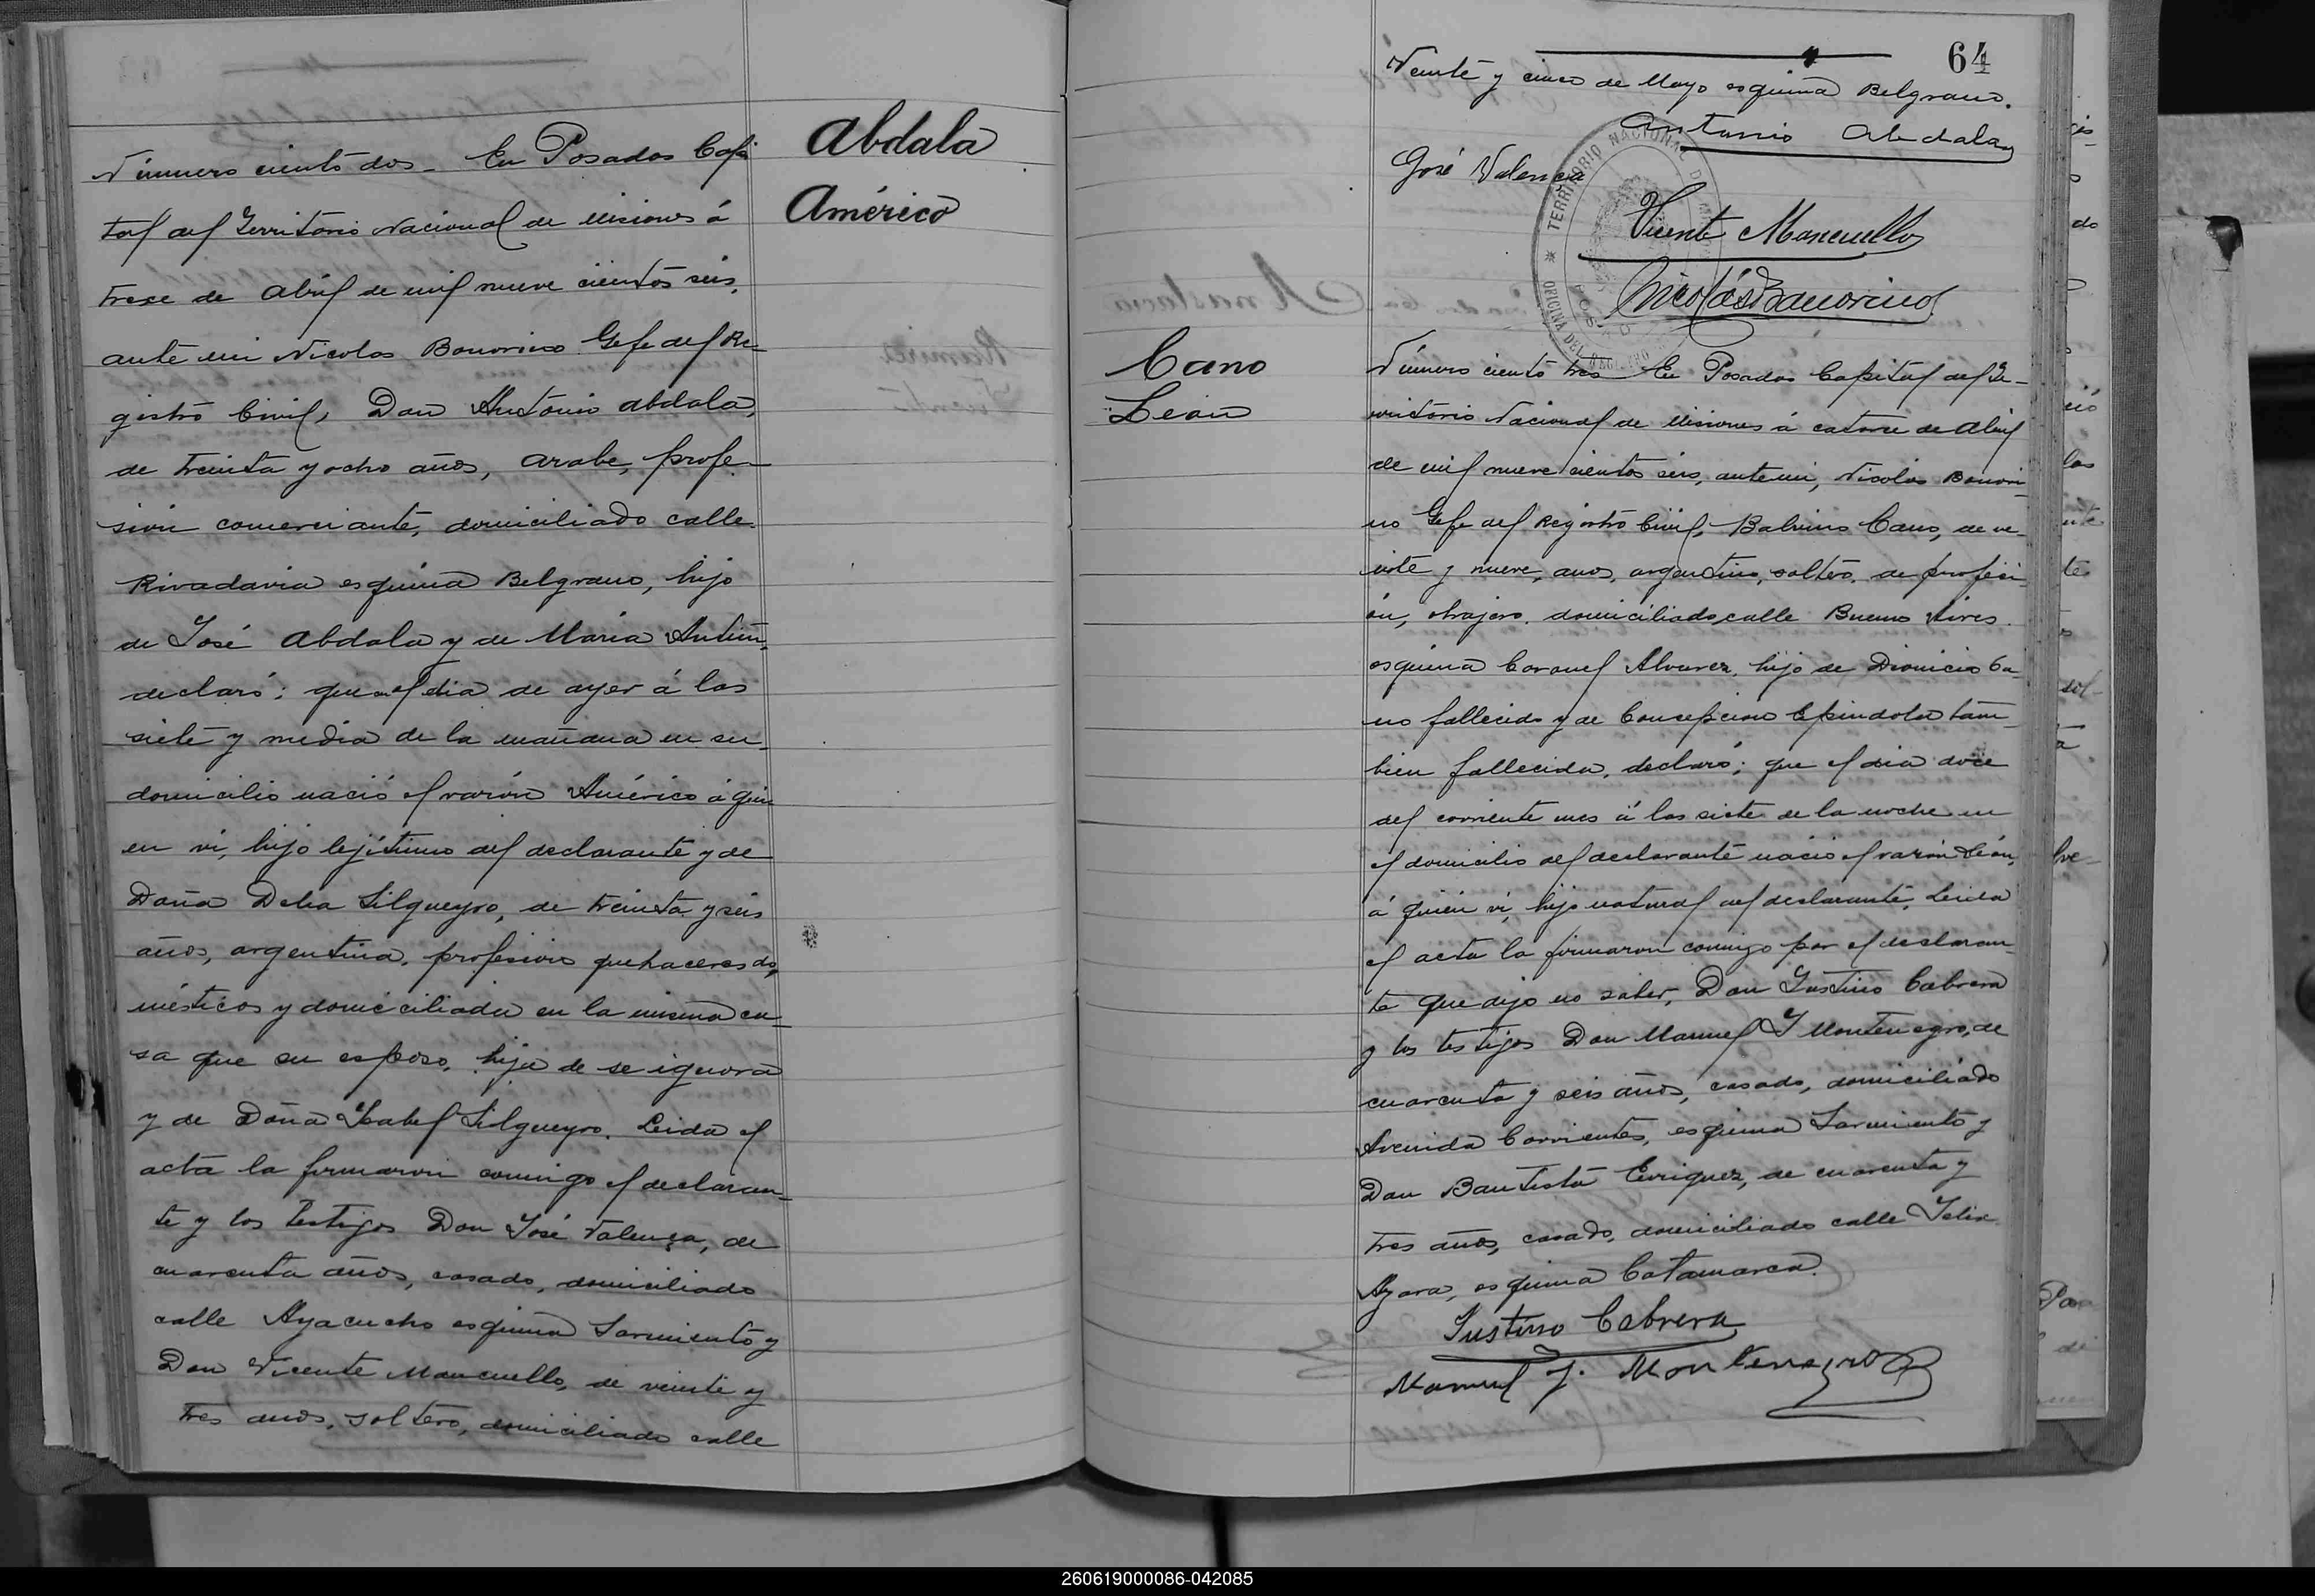 Abdala
Américo
Número ciento dos_ En Posadas Capi
tal del Territorio Nacional de Misiones á
trece de Abril de mil nueve cientos seis,
ante mi Nicolas Bonorino Gefe del Re-
gistro Civil, Don Antonio Abdala,
de treinta y ocho años, arabe, profe-
sion comerciante, domiciliado calle
Rivadavia esquina Belgrano, hijo
de José Abdala y de Maria
declaró; que el dia de ayer á las
siete y media de la mañana en su
domicilio nació el varón Américo á qui
en vi, hijo lejítimo del declarante y de
Doña Delia Silgueyro, de treinta y seis
años, argentina, profesion quehaceres do-
mésticos y domiciliada en la misma ca-
sa que su esposo, hija de se ignora
y de Doña Isabel Silgueyro. Leida el
acta la firmaron conmigo el declaran-
te y los testigos Don José Valença, de
cuarenta años, casado, domiciliado
calle Ayacucho esquina Sarmiento y
Don Vicente Mancuello, de veinte y
tres años, soltero, domiciliado calle
64
Veinte y cinco de Mayo esquina Belgrano.
Antonio Abdala
José Valença
Vicente Mancuello
Nicolás Bonorino
TERRITORIO NACIONAL DE MI
OFICINA DEL REGISTRO
POS
Cano
León
Número ciento tres_ En Posadas Capital del Te-
rritorio Nacional de Misiones á catorce de Abril
de mil nueve cientos seis, ante mi, Nicolás Bonori-
no Gefe del Registro Civil, Balvino Cano, de ve-
inte y nueve años, argentino, soltero, de profesi-
ón, obrajero, domiciliado calle Buenos Aires
esquina Coronel Alvarez, hijo de Dionicio Ca-
no fallecido y de Concepcion Epindola tam-
bien fallecida, declaró; que el dia doce
del corriente mes á las siete de la noche en
el domicilio del declarante nació el varón León,
á quien vi, hijo natural del declarante. Leida
el acta la firmaron conmigo por el declaran-
te que dijo no saber, Don Justino Cabrera
y los testigos Don Manuel J Montenegro, de
cuarenta y seis años, casado, domiciliado
Avenida Corrientes, esquina Sarmiento y
Don Bautista Enriquez, de cuarenta y
tres años, casado, domiciliado calle Felix
Azara, esquina Catamarca.
Justino Cabrera
Manuel J. Montenegro
260619000086-042085